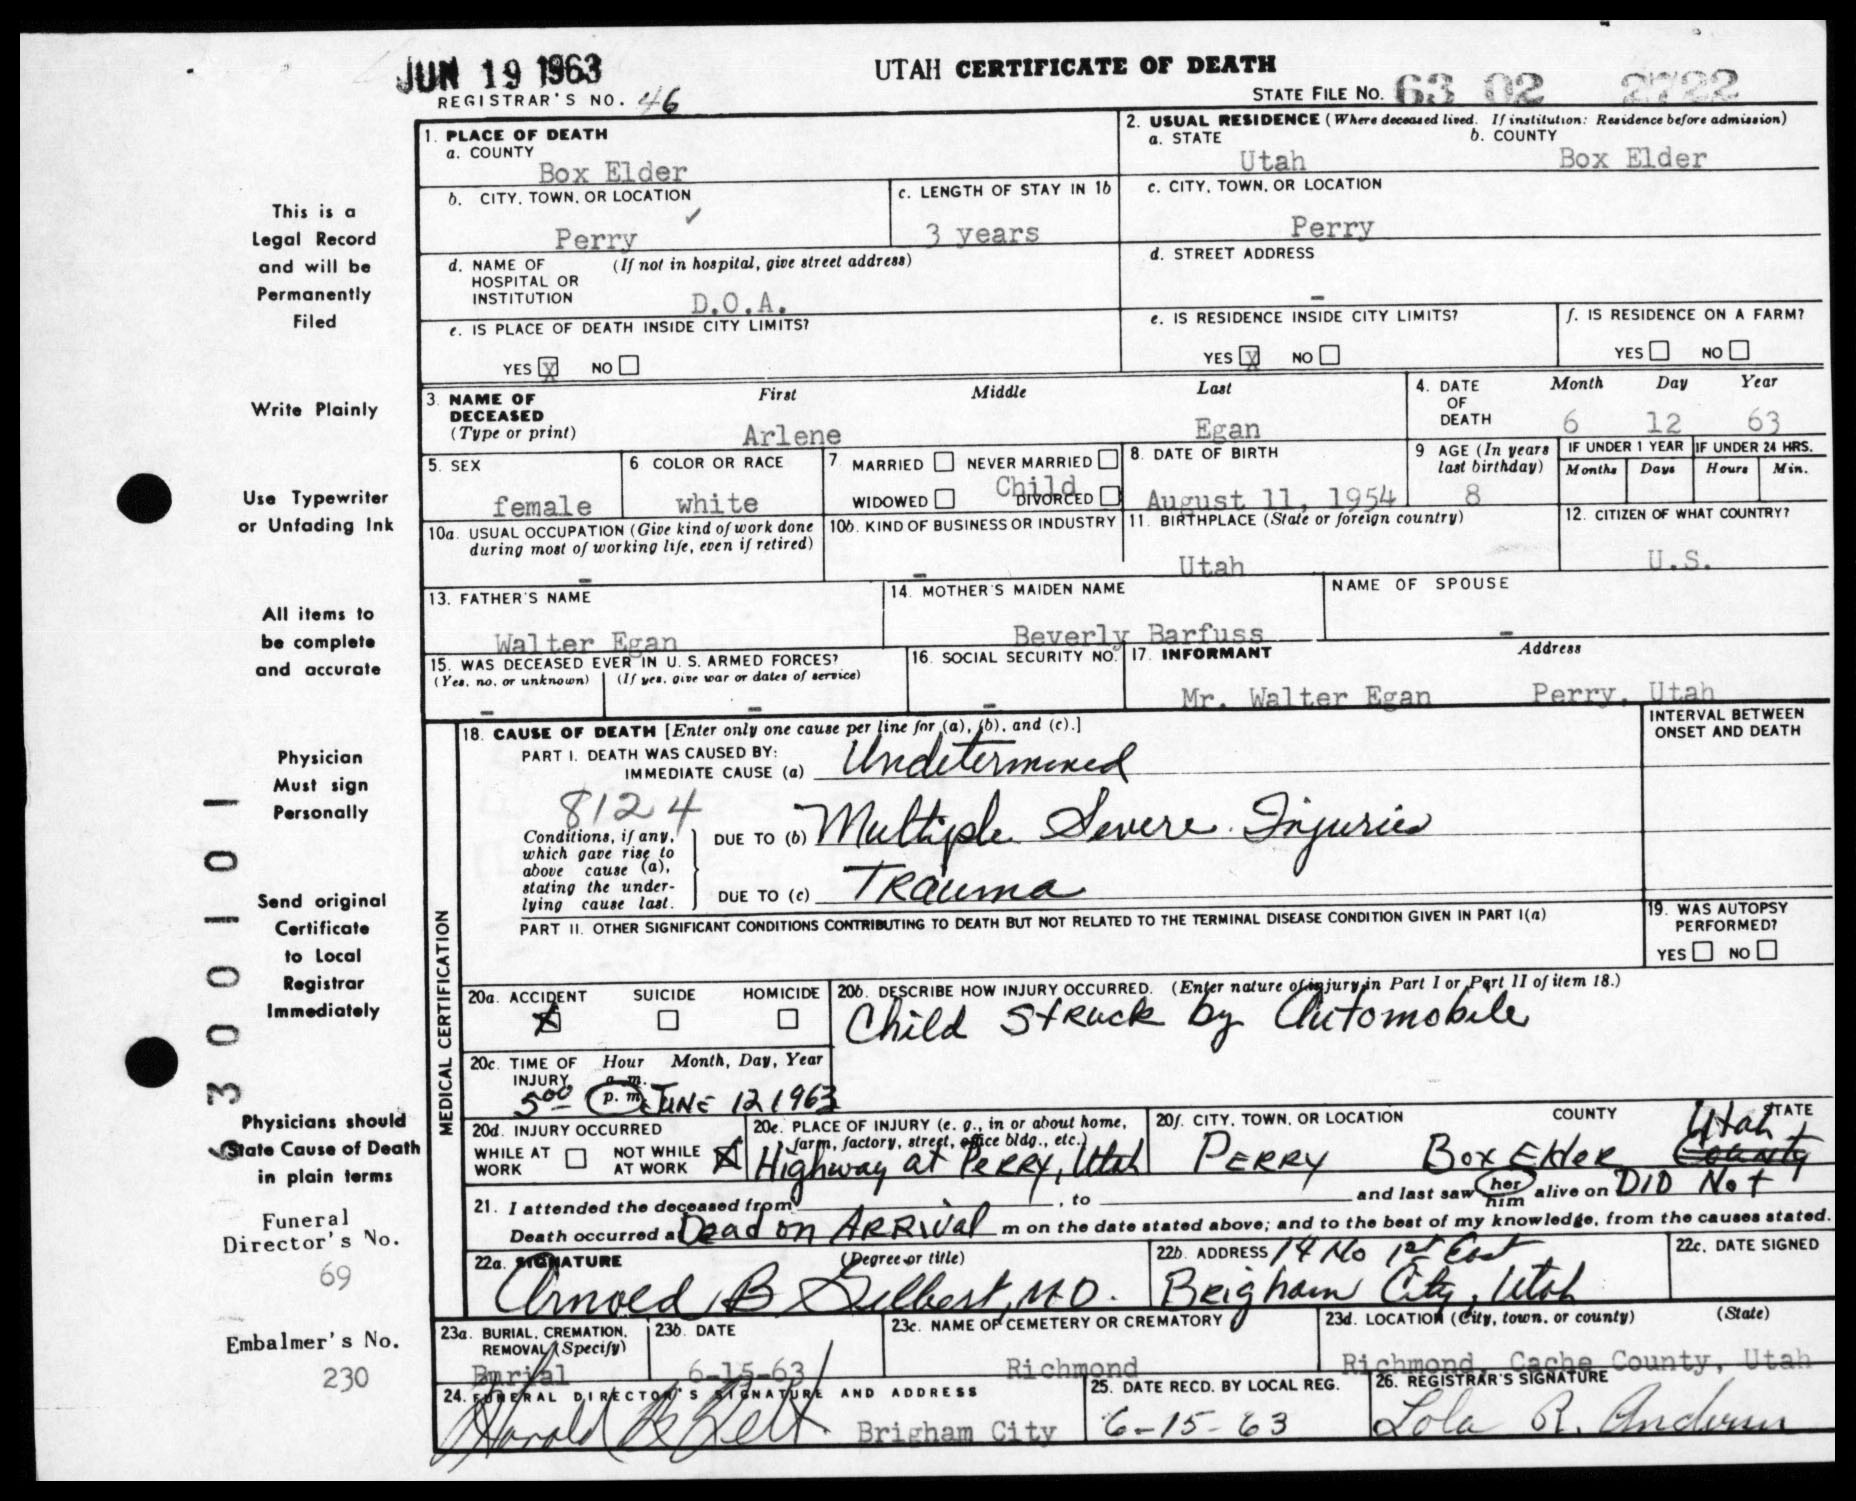 JUN 19 1963
UTAH CERTIFICATE OF DEATH
REGISTRAR'S NO. 46
STATE FILE NO. 63 02 2722
1. PLACE OF DEATH
a. COUNTY
Box Elder
2. USUAL RESIDENCE (Where deceased lived. If institution: Residence before admission)
a. STATE b. COUNTY
Utah Box Elder
b. CITY, TOWN, OR LOCATION
Perry ✓
c. LENGTH OF STAY IN 1b
3 years
c. CITY, TOWN, OR LOCATION
Perry
d. NAME OF (If not in hospital, give street address)
HOSPITAL OR
INSTITUTION D.O.A.
d. STREET ADDRESS
-
e. IS PLACE OF DEATH INSIDE CITY LIMITS?
YES X NO
e. IS RESIDENCE INSIDE CITY LIMITS?
YES X NO
f. IS RESIDENCE ON A FARM?
YES NO
3. NAME OF First Middle Last
DECEASED
(Type or print) Arlene Egan
4. DATE Month Day Year
OF
DEATH 6 12 63
5. SEX
female
6 COLOR OR RACE
white
7. MARRIED NEVER MARRIED
Child
WIDOWED DIVORCED
8. DATE OF BIRTH
August 11, 1954
9 AGE (In years
last birthday)
8
IF UNDER 1 YEAR IF UNDER 24 HRS.
Months Days Hours Min.
10a. USUAL OCCUPATION (Give kind of work done
during most of working life, even if retired)
-
10b. KIND OF BUSINESS OR INDUSTRY
-
11. BIRTHPLACE (State or foreign country)
Utah
12. CITIZEN OF WHAT COUNTRY?
U.S.
13. FATHER'S NAME
Walter Egan
14. MOTHER'S MAIDEN NAME
Beverly Barfuss
NAME OF SPOUSE
-
15. WAS DECEASED EVER IN U. S. ARMED FORCES?
(Yes, no, or unknown) (If yes, give war or dates of service)
- -
16. SOCIAL SECURITY NO.
-
17. INFORMANT Address
Mr. Walter Egan Perry, Utah
18. CAUSE OF DEATH [Enter only one cause per line for (a), (b), and (c).]
INTERVAL BETWEEN
ONSET AND DEATH
PART I. DEATH WAS CAUSED BY:
IMMEDIATE CAUSE (a) Undetermined
8124
Conditions, if any,
which gave rise to
above cause (a),
stating the under-
lying cause last.
DUE TO (b) Multiple Severe Injuries
DUE TO (c) Trauma
PART II. OTHER SIGNIFICANT CONDITIONS CONTRIBUTING TO DEATH BUT NOT RELATED TO THE TERMINAL DISEASE CONDITION GIVEN IN PART I(a)
19. WAS AUTOPSY
PERFORMED?
YES NO
MEDICAL CERTIFICATION
20a. ACCIDENT SUICIDE HOMICIDE
X
20b. DESCRIBE HOW INJURY OCCURRED. (Enter nature of injury in Part I or Part II of item 18.)
Child Struck by Automobile
20c. TIME OF Hour Month, Day, Year
INJURY a. m.
5 00 p. m. JUNE 12 1963
20d. INJURY OCCURRED
WHILE AT NOT WHILE X
WORK AT WORK
20e. PLACE OF INJURY (e. g., in or about home,
farm, factory, street, office bldg., etc.)
Highway at Perry, Utah
20f. CITY, TOWN, OR LOCATION COUNTY STATE
Perry Box Elder County Utah
21. I attended the deceased from , to and last saw her him alive on DID Not
Death occurred at Dead on Arrival m on the date stated above; and to the best of my knowledge, from the causes stated.
22a. SIGNATURE (Degree or title)
Arnold B Gilbert, M.D.
22b. ADDRESS 14 No 1st East
Brigham City, Utah
22c. DATE SIGNED
23a. BURIAL, CREMATION,
REMOVAL (Specify)
Burial
23b. DATE
6-15-63
23c. NAME OF CEMETERY OR CREMATORY
Richmond
23d. LOCATION (City, town, or county) (State)
Richmond, Cache County, Utah
24. FUNERAL DIRECTOR'S SIGNATURE AND ADDRESS
Harold B Felt Brigham City
25. DATE RECD. BY LOCAL REG.
6-15-63
26. REGISTRAR'S SIGNATURE
Lola R. Anderson
This is a
Legal Record
and will be
Permanently
Filed
Write Plainly
Use Typewriter
or Unfading Ink
All items to
be complete
and accurate
Physician
Must sign
Personally
Send original
Certificate
to Local
Registrar
Immediately
Physicians should
State Cause of Death
in plain terms
Funeral
Director's No.
69
Embalmer's No.
230